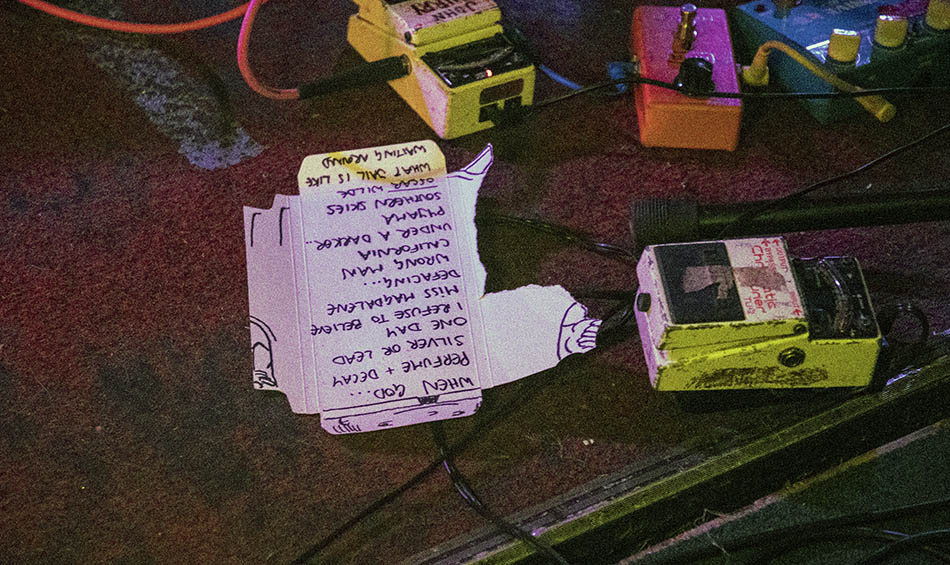 WHEN GOD...
PERFUME + DECAY
SILVER OR LEAD
ONE DAY
I REFUSE TO BELIEVE
MISS MAGDALENE
DEFACING...
WRONG MAN
CALIFORNIA
UNDER A DARKER...
PYJAMA
SOUTHERN SKIES
OSCAR WILDE
WHAT JAIL IS LIKE
WAITING AROUND
JOHN